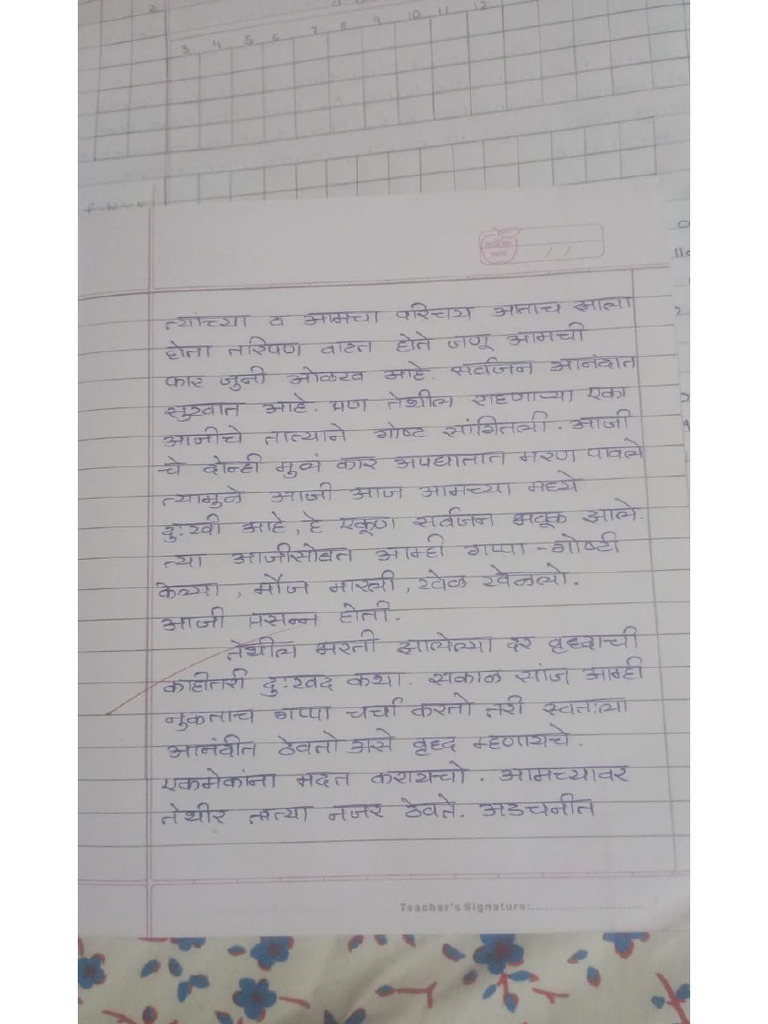 3 4 5 6 7 8 9 10 11 12
त्यांच्या व आमचा परिचय आताच झाला
होता तरिपण वाटत होते जणू आमची
फार जुनी ओळख आहे. सर्वजन आनंदात
सुखात आहे. पण तेथील राहणाऱ्या एका
आजीचे तात्याने गोष्ट सांगितली. आजी
चे दोन्ही मुलं कार अपघातात मरण पावले
त्यामुळे आजी आज आमच्या मध्ये
दुःखी आहे, हे एकूण सर्वजन भावूक झाले.
त्या आजीसोबत आम्ही गप्पा-गोष्टी
केल्या, मौज मारली, खेळ खेळलो.
आजी प्रसन्न होती.
तेथील भरती झालेल्या दर वृध्दाची
काहीतरी दुःखद कथा. सकाळ सांज आम्ही
नुकताच गप्पा चर्चा करतो तरी स्वतःला
आनंदीत ठेवतो असे वृध्द म्हणायचे.
एकमेकांना मदत करायचो. आमच्यावर
तेथीर तात्या नजर ठेवते. अडचनीत
Teacher's Signature: